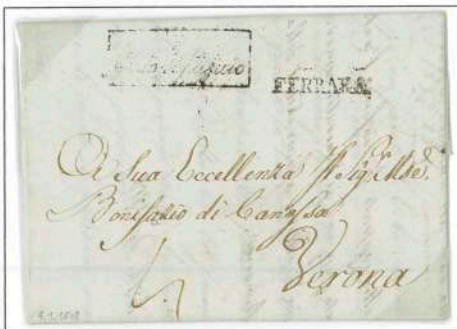 FERRARA
A Sua Eccellenza Il Sig.r M.se
Bonifazio di Canossa
Verona